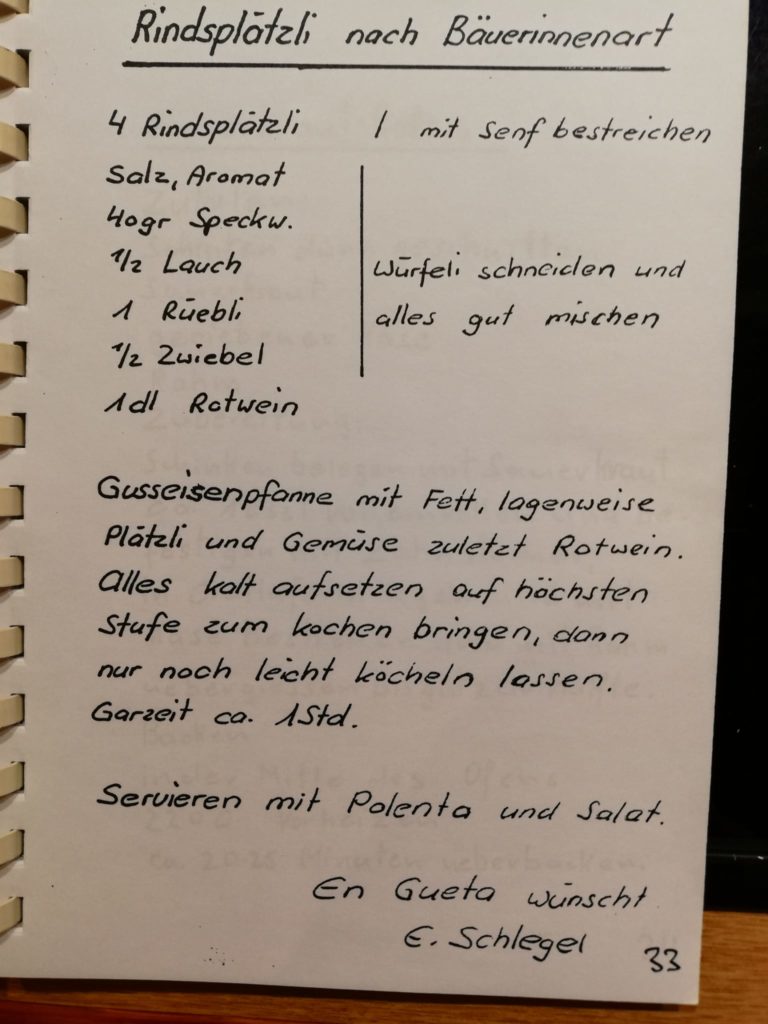 Rindsplätzli nach Bäuerinnenart
4 Rindsplätzli / mit Senf bestreichen
Salz, Aromat
40gr Speckw.
1/2 Lauch Würfeli schneiden und
1 Rüebli alles gut mischen
1/2 Zwiebel
1dl Rotwein
Gusseisenpfanne mit Fett, lagenweise
Plätzli und Gemüse zuletzt Rotwein.
Alles kalt aufsetzen auf höchsten
Stufe zum kochen bringen, dann
nur noch leicht köcheln lassen.
Garzeit ca. 1Std.
Servieren mit Polenta und Salat.
En Gueta wünscht
E. Schlegel
33